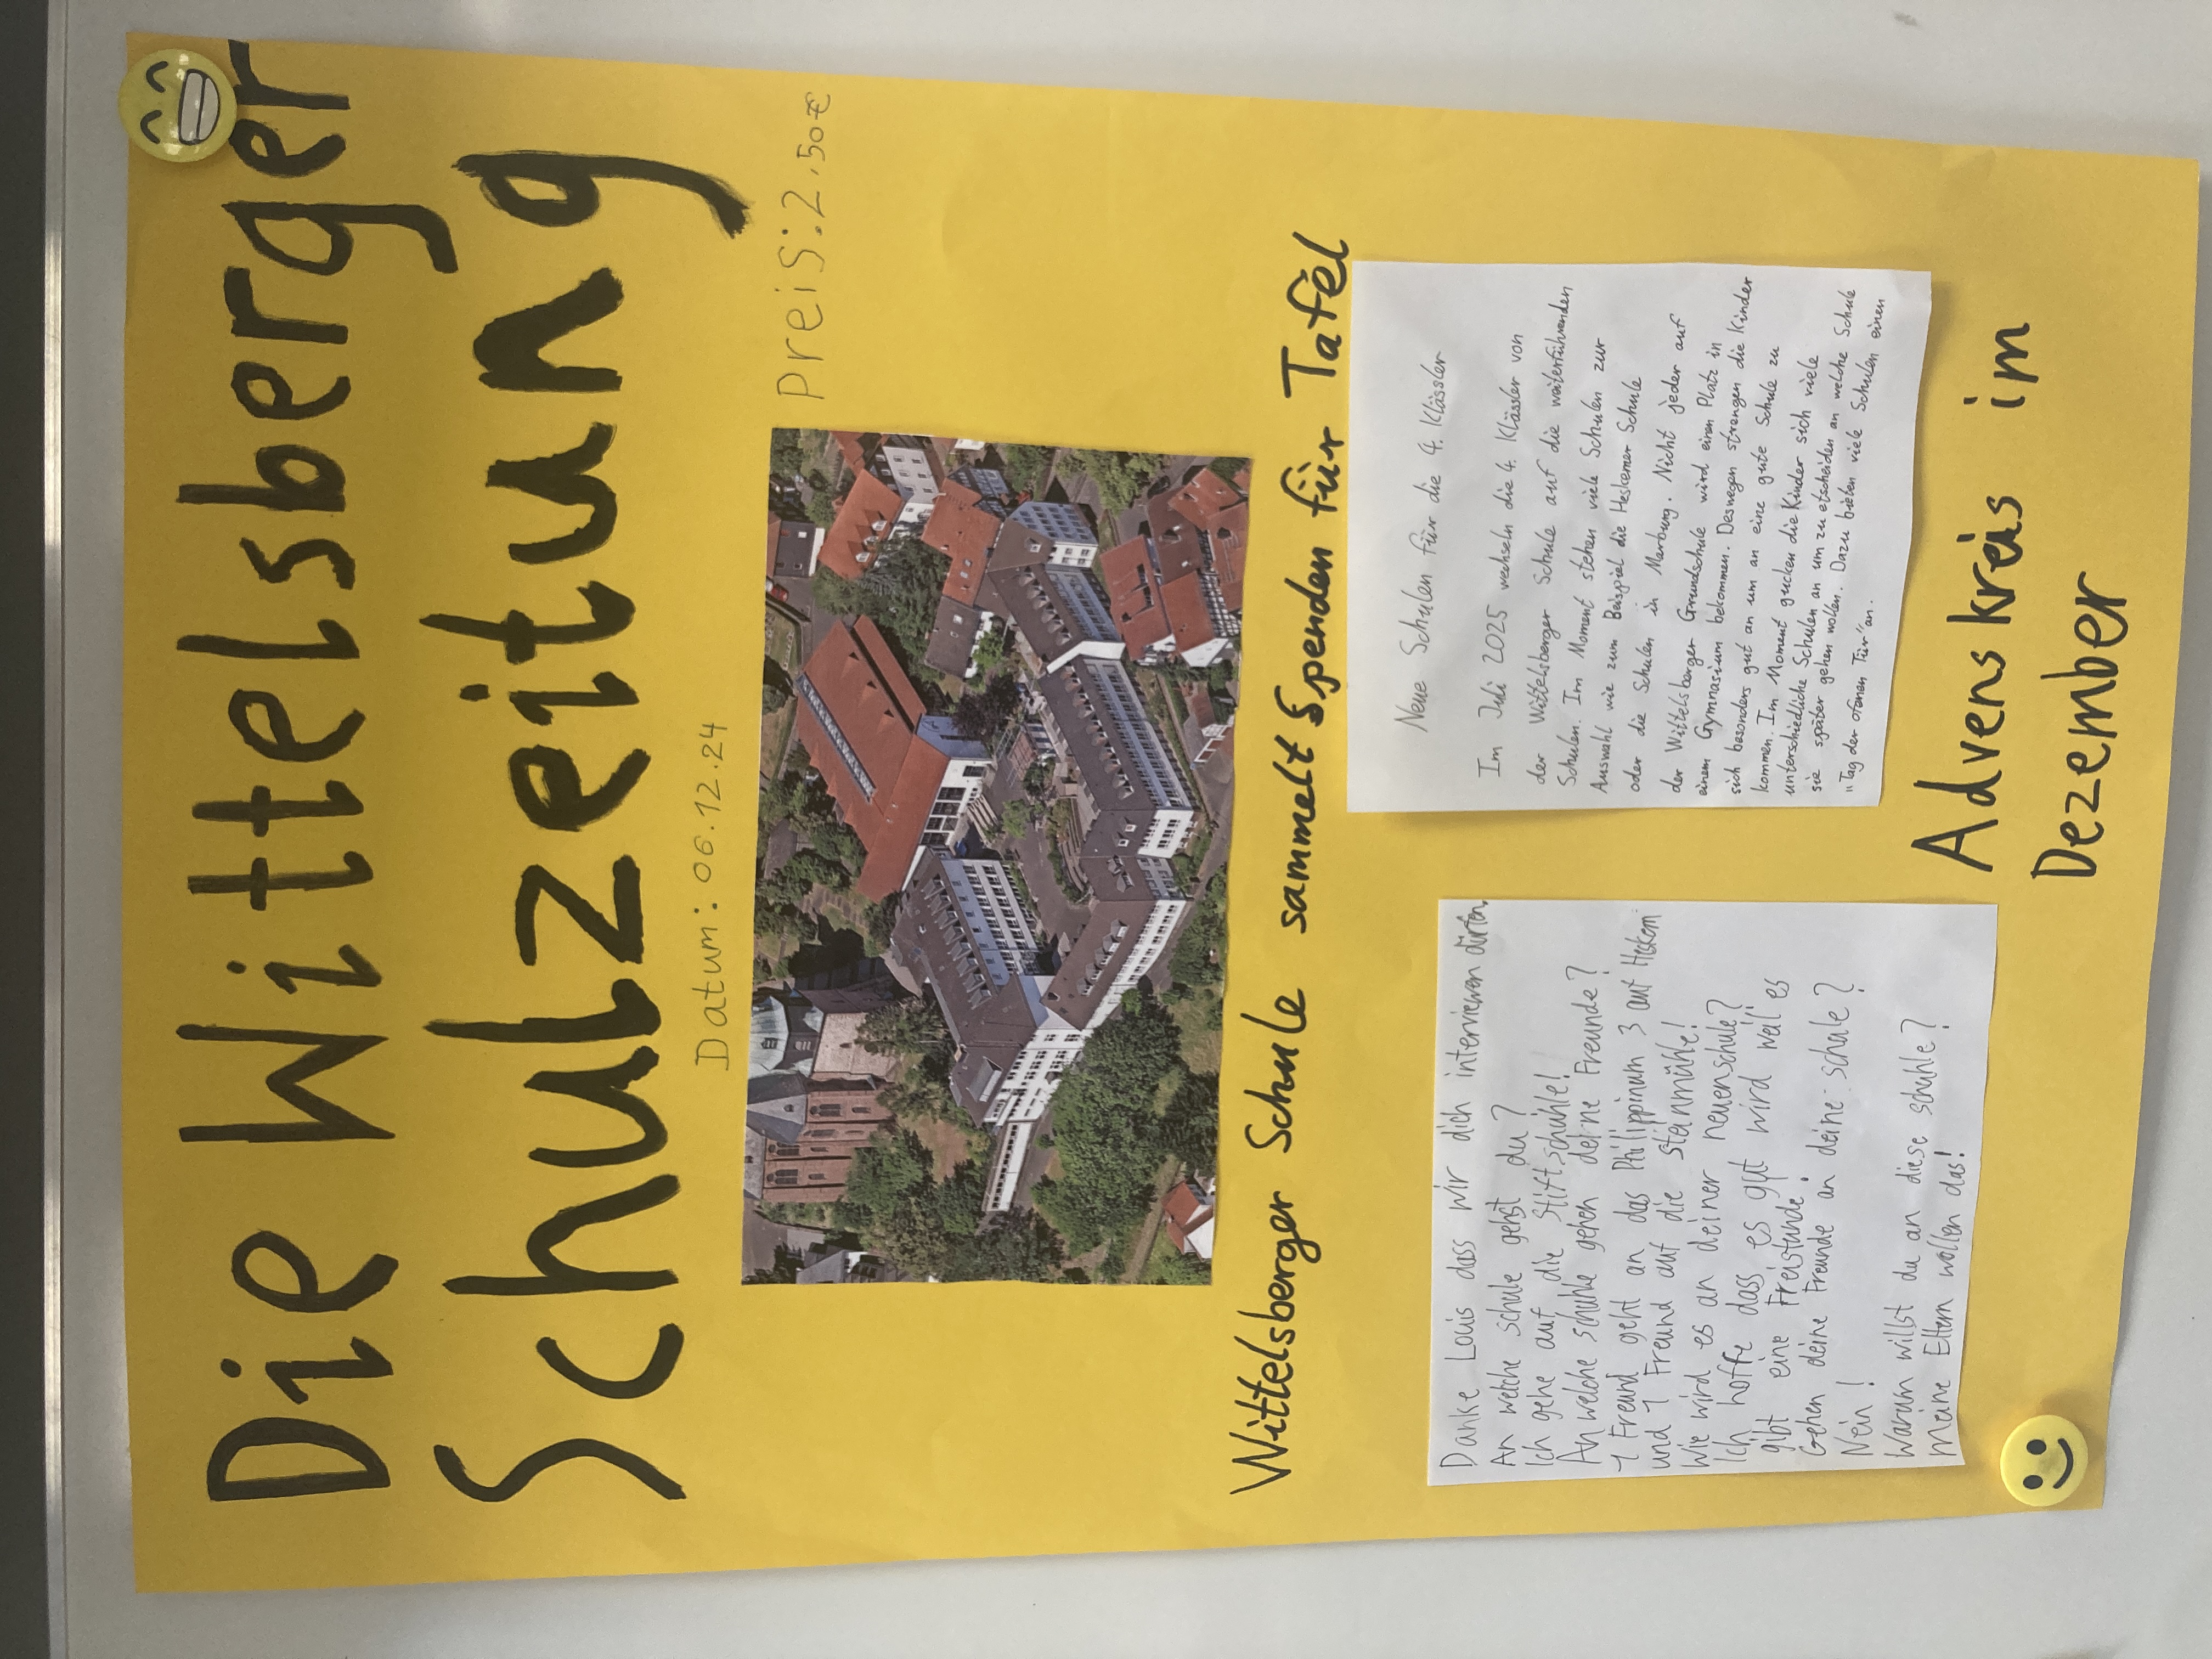 Die Wittelsberger
Schulzeitung
Datum: 06.12.24
Preis: 2,50€
Wittelsberger Schule sammelt Spenden für Tafel
Danke Louis dass wir dich interviewen dürfen.
An welche schule gehst du?
Ich gehe auf die Stiftschuhle!
An welche schuhle gehen deine Freunde?
1 Freund geht an das Philippinum 3 auf Heskem
und 1 Freund auf die steinmühle!
Wie wird es an deiner neuenschule?
Ich hoffe dass es gut wird weil es
gibt eine Freistunde!
Gehen deine Freunde an deine schule?
Nein!
Warum willst du an diese schuhle?
Meine Eltern wollen das!
Neue Schulen für die 4. Klässler
Im Juli 2025 wechseln die 4. Klässler von
der Wittelsberger Schule auf die weiterführenden
Schulen. Im Moment stehen viele Schulen zur
Auswahl wie zum Beispiel die Heskemer Schule
oder die Schulen in Marburg. Nicht jeder auf
der Wittelsberger Grundschule wird einen Platz in
einem Gymnasium bekommen. Deswegen strengen die Kinder
sich besonders gut an um an eine gute Schule zu
kommen. Im Moment gucken die Kinder sich viele
unterschiedliche Schulen an um zu etscheiden an welche Schule
sie später gehen wollen. Dazu bieten viele Schulen einen
"Tag der ofenen Tür" an.
Advenskreis im
Dezember